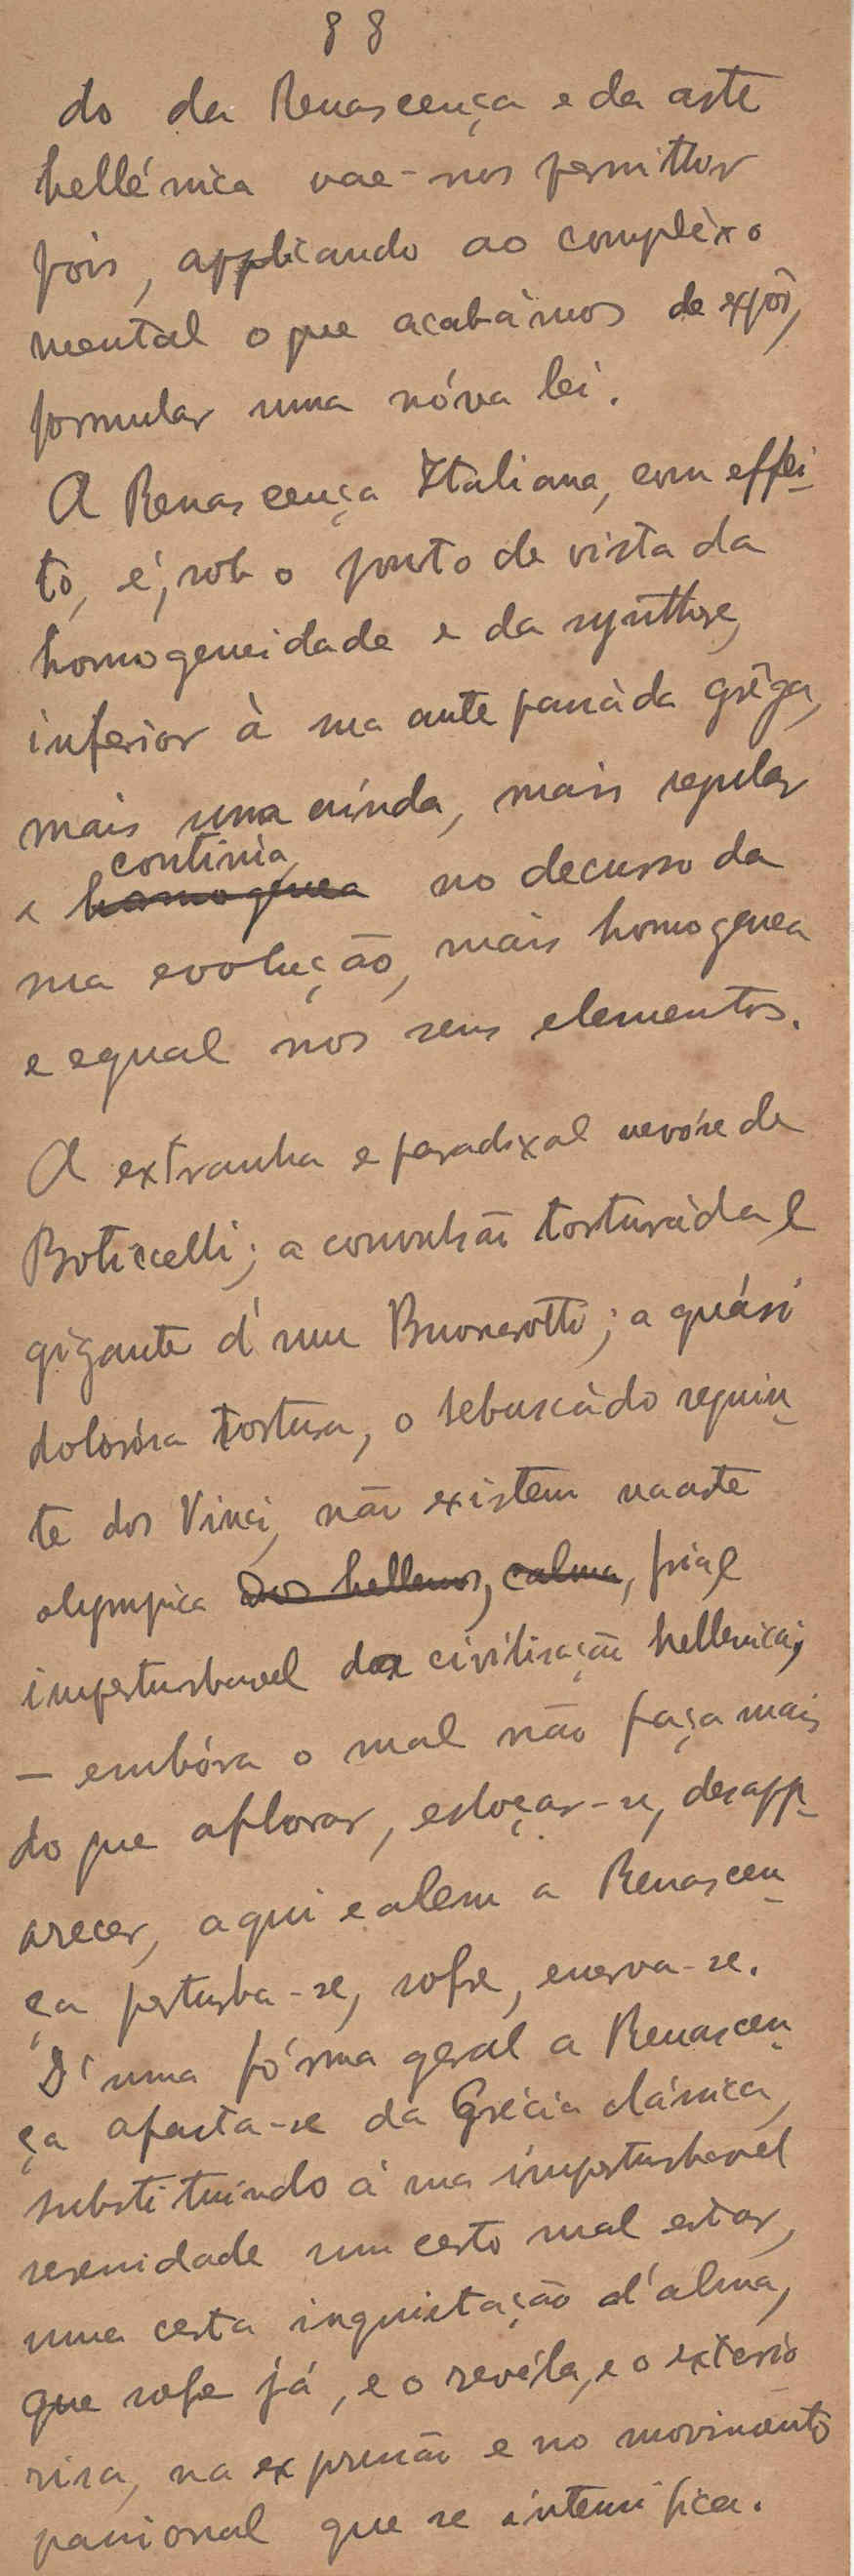 88
do da Renascença e da arte
hellénica vae-nos permitter
pois, applicando ao complèxo
mental o que acabàmos de expôr,
formular uma nóva lei.
A Renascença Italiana, com effei-
to, é, sob o ponto de vista da
homogeneidade e da synthese,
inferior à sua antepassàda grêga,
mais una ainda, mais regular
continua,
e homogenea no decurso da
sua evolução, mais homogenea
e equal nos seus elementos.
A extranha e paradoxal nevróse de
Boticcelli; a convulsão torturàda e
gigante d'um Buonarotti; a quási
dolorósa tortura, o rebuscàdo requin-
te dos Vinci, não existem na arte
olympica dos hellenos, calma, fria e
imperturbavel da civilisação hellenica;
— embóra o mal não faça mais
do que aflorar, esboçar-se, desapp-
arecer, aqui e alem a Renascen-
ça perturba-se, sofre, enerva-se.
D'uma fórma geral a Renascen-
ça afasta-se da Grécia clássica,
substituindo á sua imperturbavel
serenidade um certo mal estar,
uma certa inquietação d'alma,
que sofre já, e o revéla, e o exterio
risa, na expressão e no movimento
passional que se intensifica.